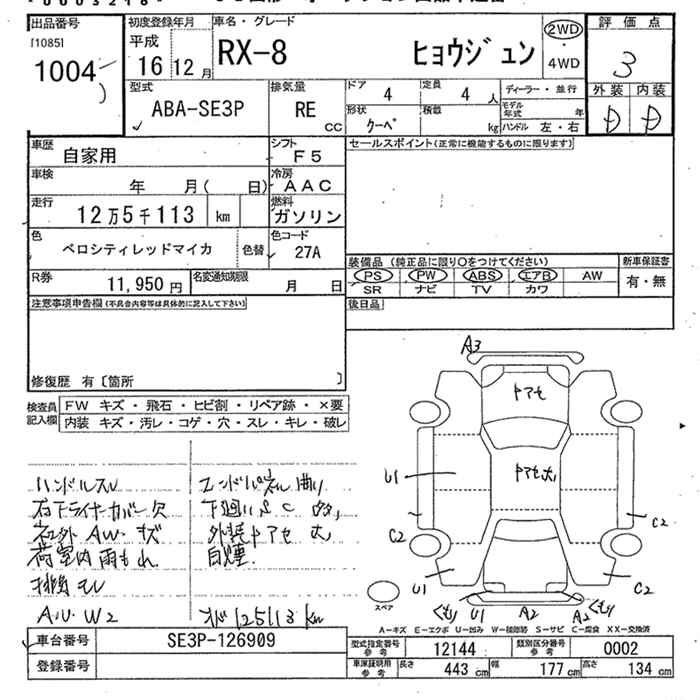 00003218
出品番号
[1085]
1004
初度登録年月
平成
16 12 月
車名・グレード
RX-8 ヒョウジュン
2WD
4WD
評価点
3
型式
ABA-SE3P
排気量
RE
CC
ドア
4
定員
4 人
形状
クーペ
積載
kg
ディーラー・並行
モデル年式 年
ハンドル 左・右
外装 内装
D D
車歴
自家用
シフト
F5
セールスポイント(正常に機能するものに限ります)
車検
年 月( 日)
冷房
AAC
走行
12万5千113 km
燃料
ガソリン
色
ベロシティレッドマイカ
色替
色コード
27A
装備品 (純正品に限り○をつけてください)
新車保証書
PS PW ABS エアB AW
SR ナビ TV カワ
有・無
R券
11,950 円
名変通知期限
月 日
後日品
注意事項申告欄(不具合内容等は具体的に記入して下さい)
修復歴 有〔箇所 〕
検査員記入欄
FW キズ・飛石・ヒビ割・リペア跡・×要
内装 キズ・汚レ・コゲ・穴・スレ・キレ・破レ
ハンドルスレ
エンドパネル曲り
右下ライナーカバー欠
外装ヤアセ 大
AW キズ
荷室内雨もれ
自煙
A.U. W2
125113 km
A3
ヤアセ
ヤアセ大
U1
C2
C2
U1
C2
スペア
くもり U1 A2 A2 くもり
A-キズ E-エクボ U-凹み W-補修跡 S-サビ C-腐食 XX-交換済
車台番号
SE3P-126909
登録番号
型式指定番号 参考
12144
類別区分番号 参考
0002
車庫証明用 参考
長さ 443 cm 幅 177 cm 高さ 134 cm